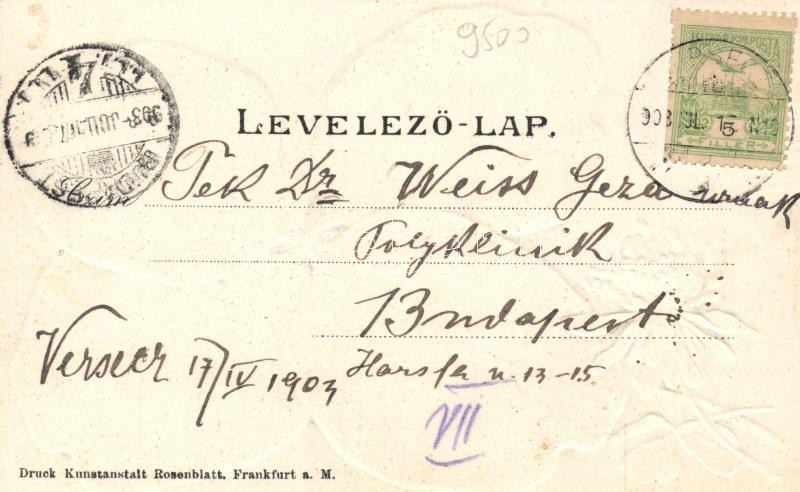 9500
903 JUL. 17
LEVELEZŐ-LAP.
MAGYAR KIR. POSTA
5
FILLER
903 JUL. 15
Tek Dr Weiss Geza urnak
Polyklinik
Budapest
Versecz 17/IV 1903
Harsfa u. 13-15
VII
Druck Kunstanstalt Rosenblatt, Frankfurt a. M.